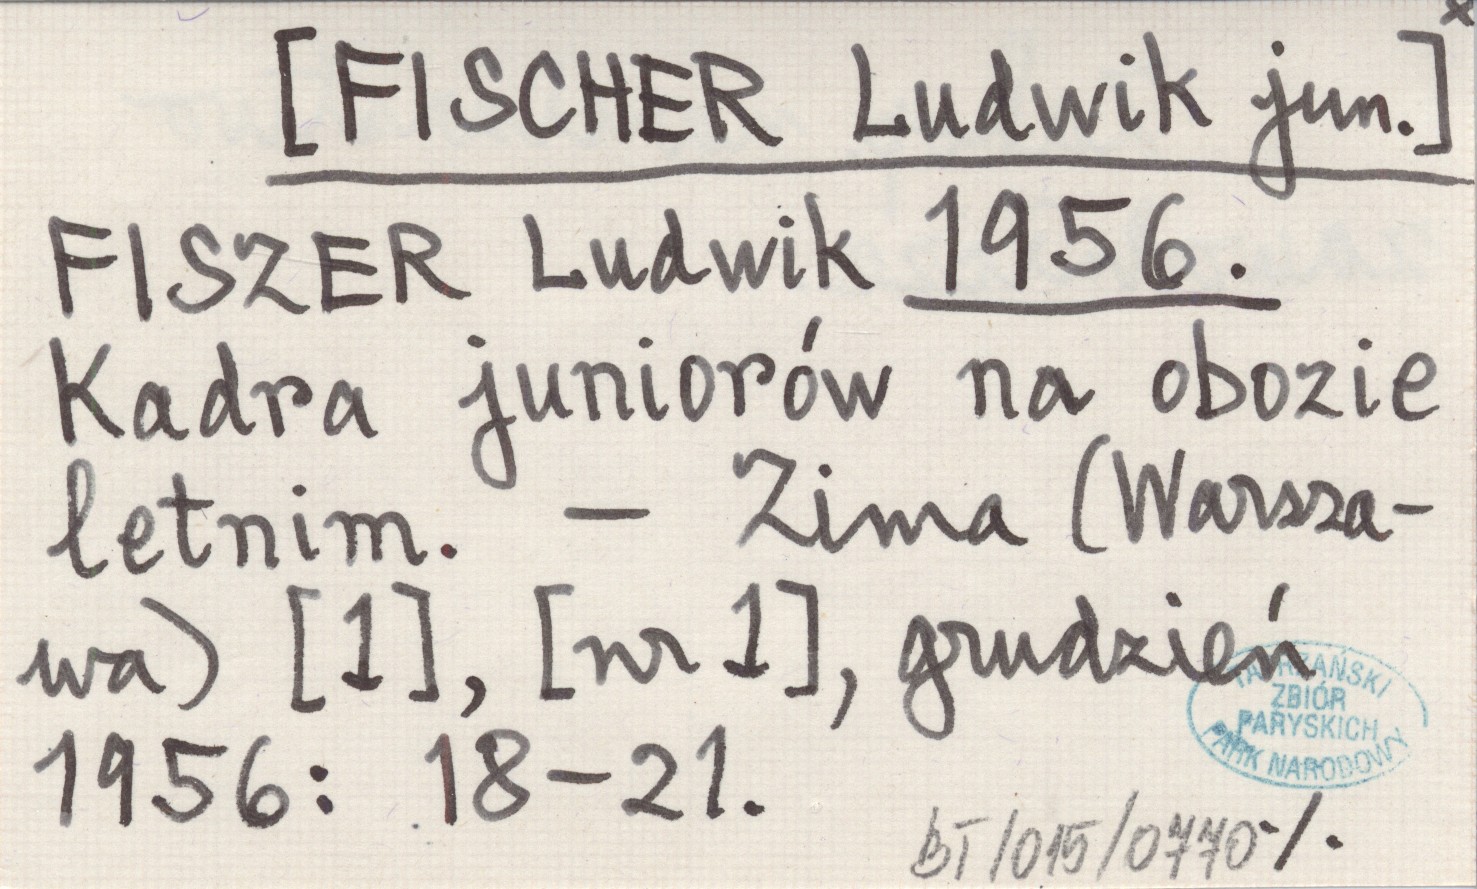 x
[FISCHER Ludwik jun.]
FISZER Ludwik 1956.
Kadra juniorów na obozie
letnim. – Zima (Warsza-
wa) [1], [nr 1], grudzień
1956: 18–21.
TATRZAŃSKI
ZBIÓR
PARYSKICH
PARK NARODOWY
BT/015/0770-/.